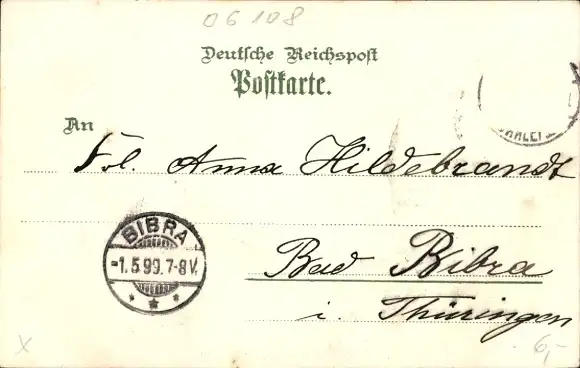 06108
Deutsche Reichspost
Postkarte.
An
Frl. Anna Hildebrandt
BIBRA
-1.5.99.7-8V.
Bad Bibra
i. Thüringen
x
6,-